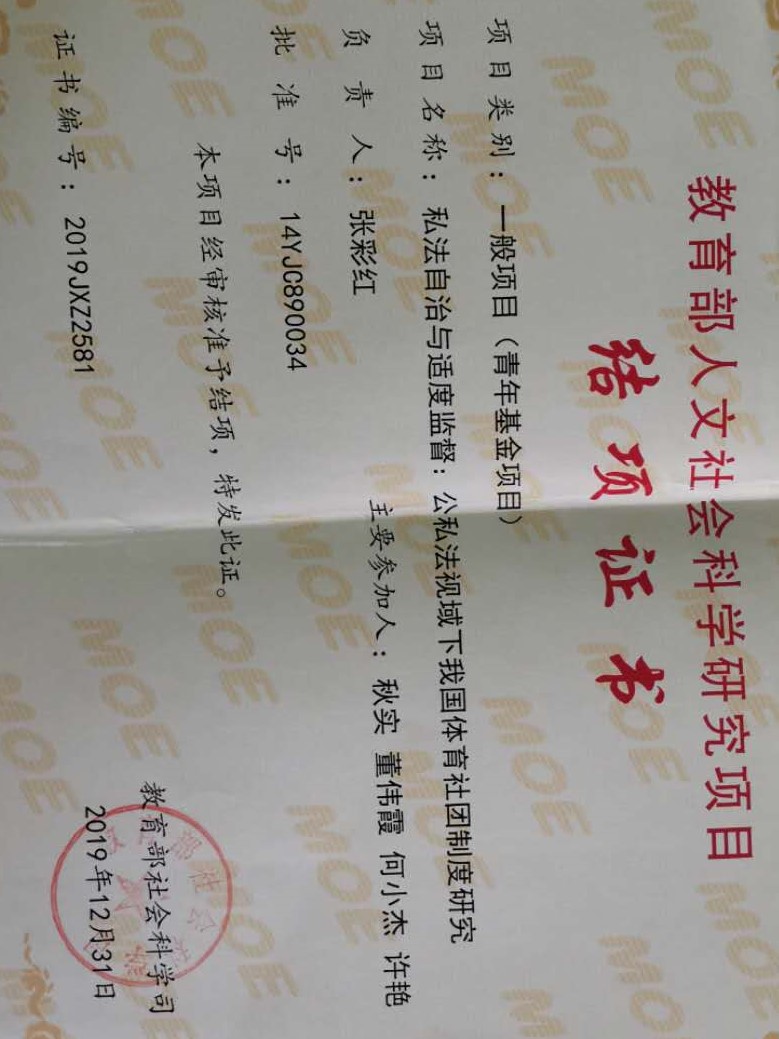 教育部人文社会科学研究项目
结项证书
项目类别：一般项目（青年基金项目）
项目名称：私法自治与适度监督：公私法视域下我国体育社团制度研究
负责人：张彩红 主要参加人：秋实 董伟霞 何小杰 许艳
批准号：14YJC890034
本项目经审核准予结项，特发此证。
教育部社会科学司
证书编号：2019JXZ2581 2019年12月31日